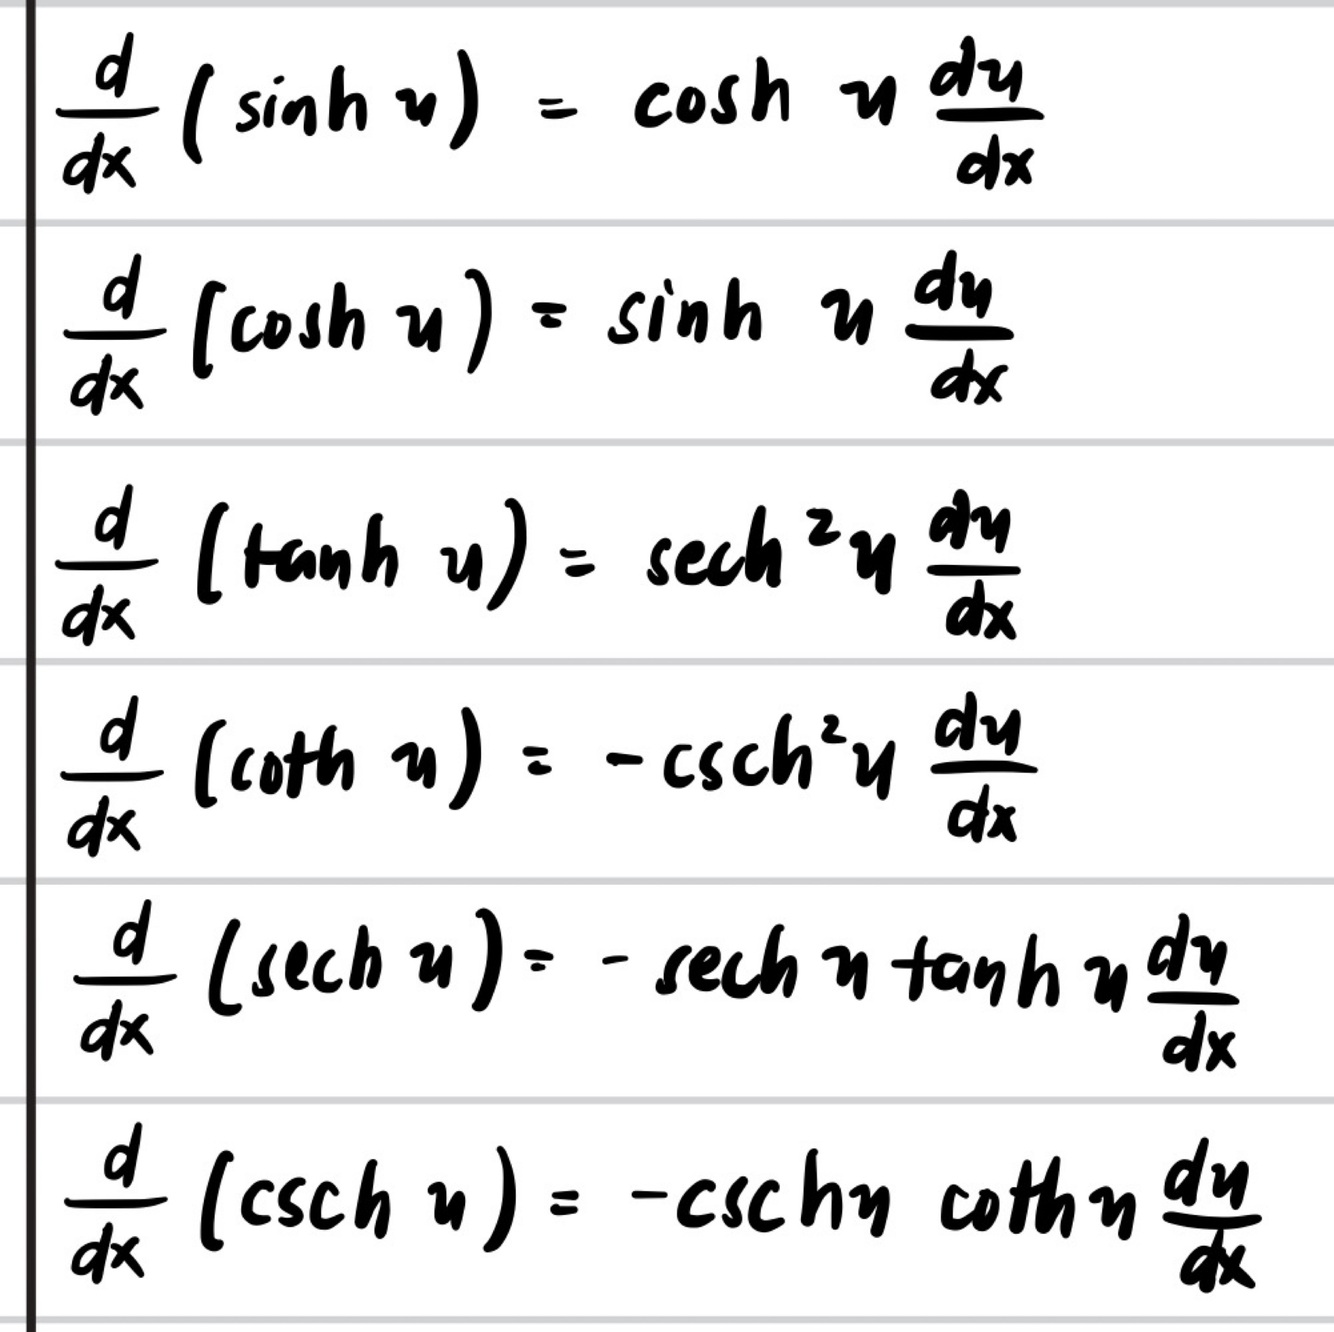 d/dx (sinh u) = cosh u du/dx
d/dx (cosh u) = sinh u du/dx
d/dx (tanh u) = sech²u du/dx
d/dx (coth u) = -csch²u du/dx
d/dx (sech u) = - sech u tanh u du/dx
d/dx (csch u) = -csch u coth u du/dx